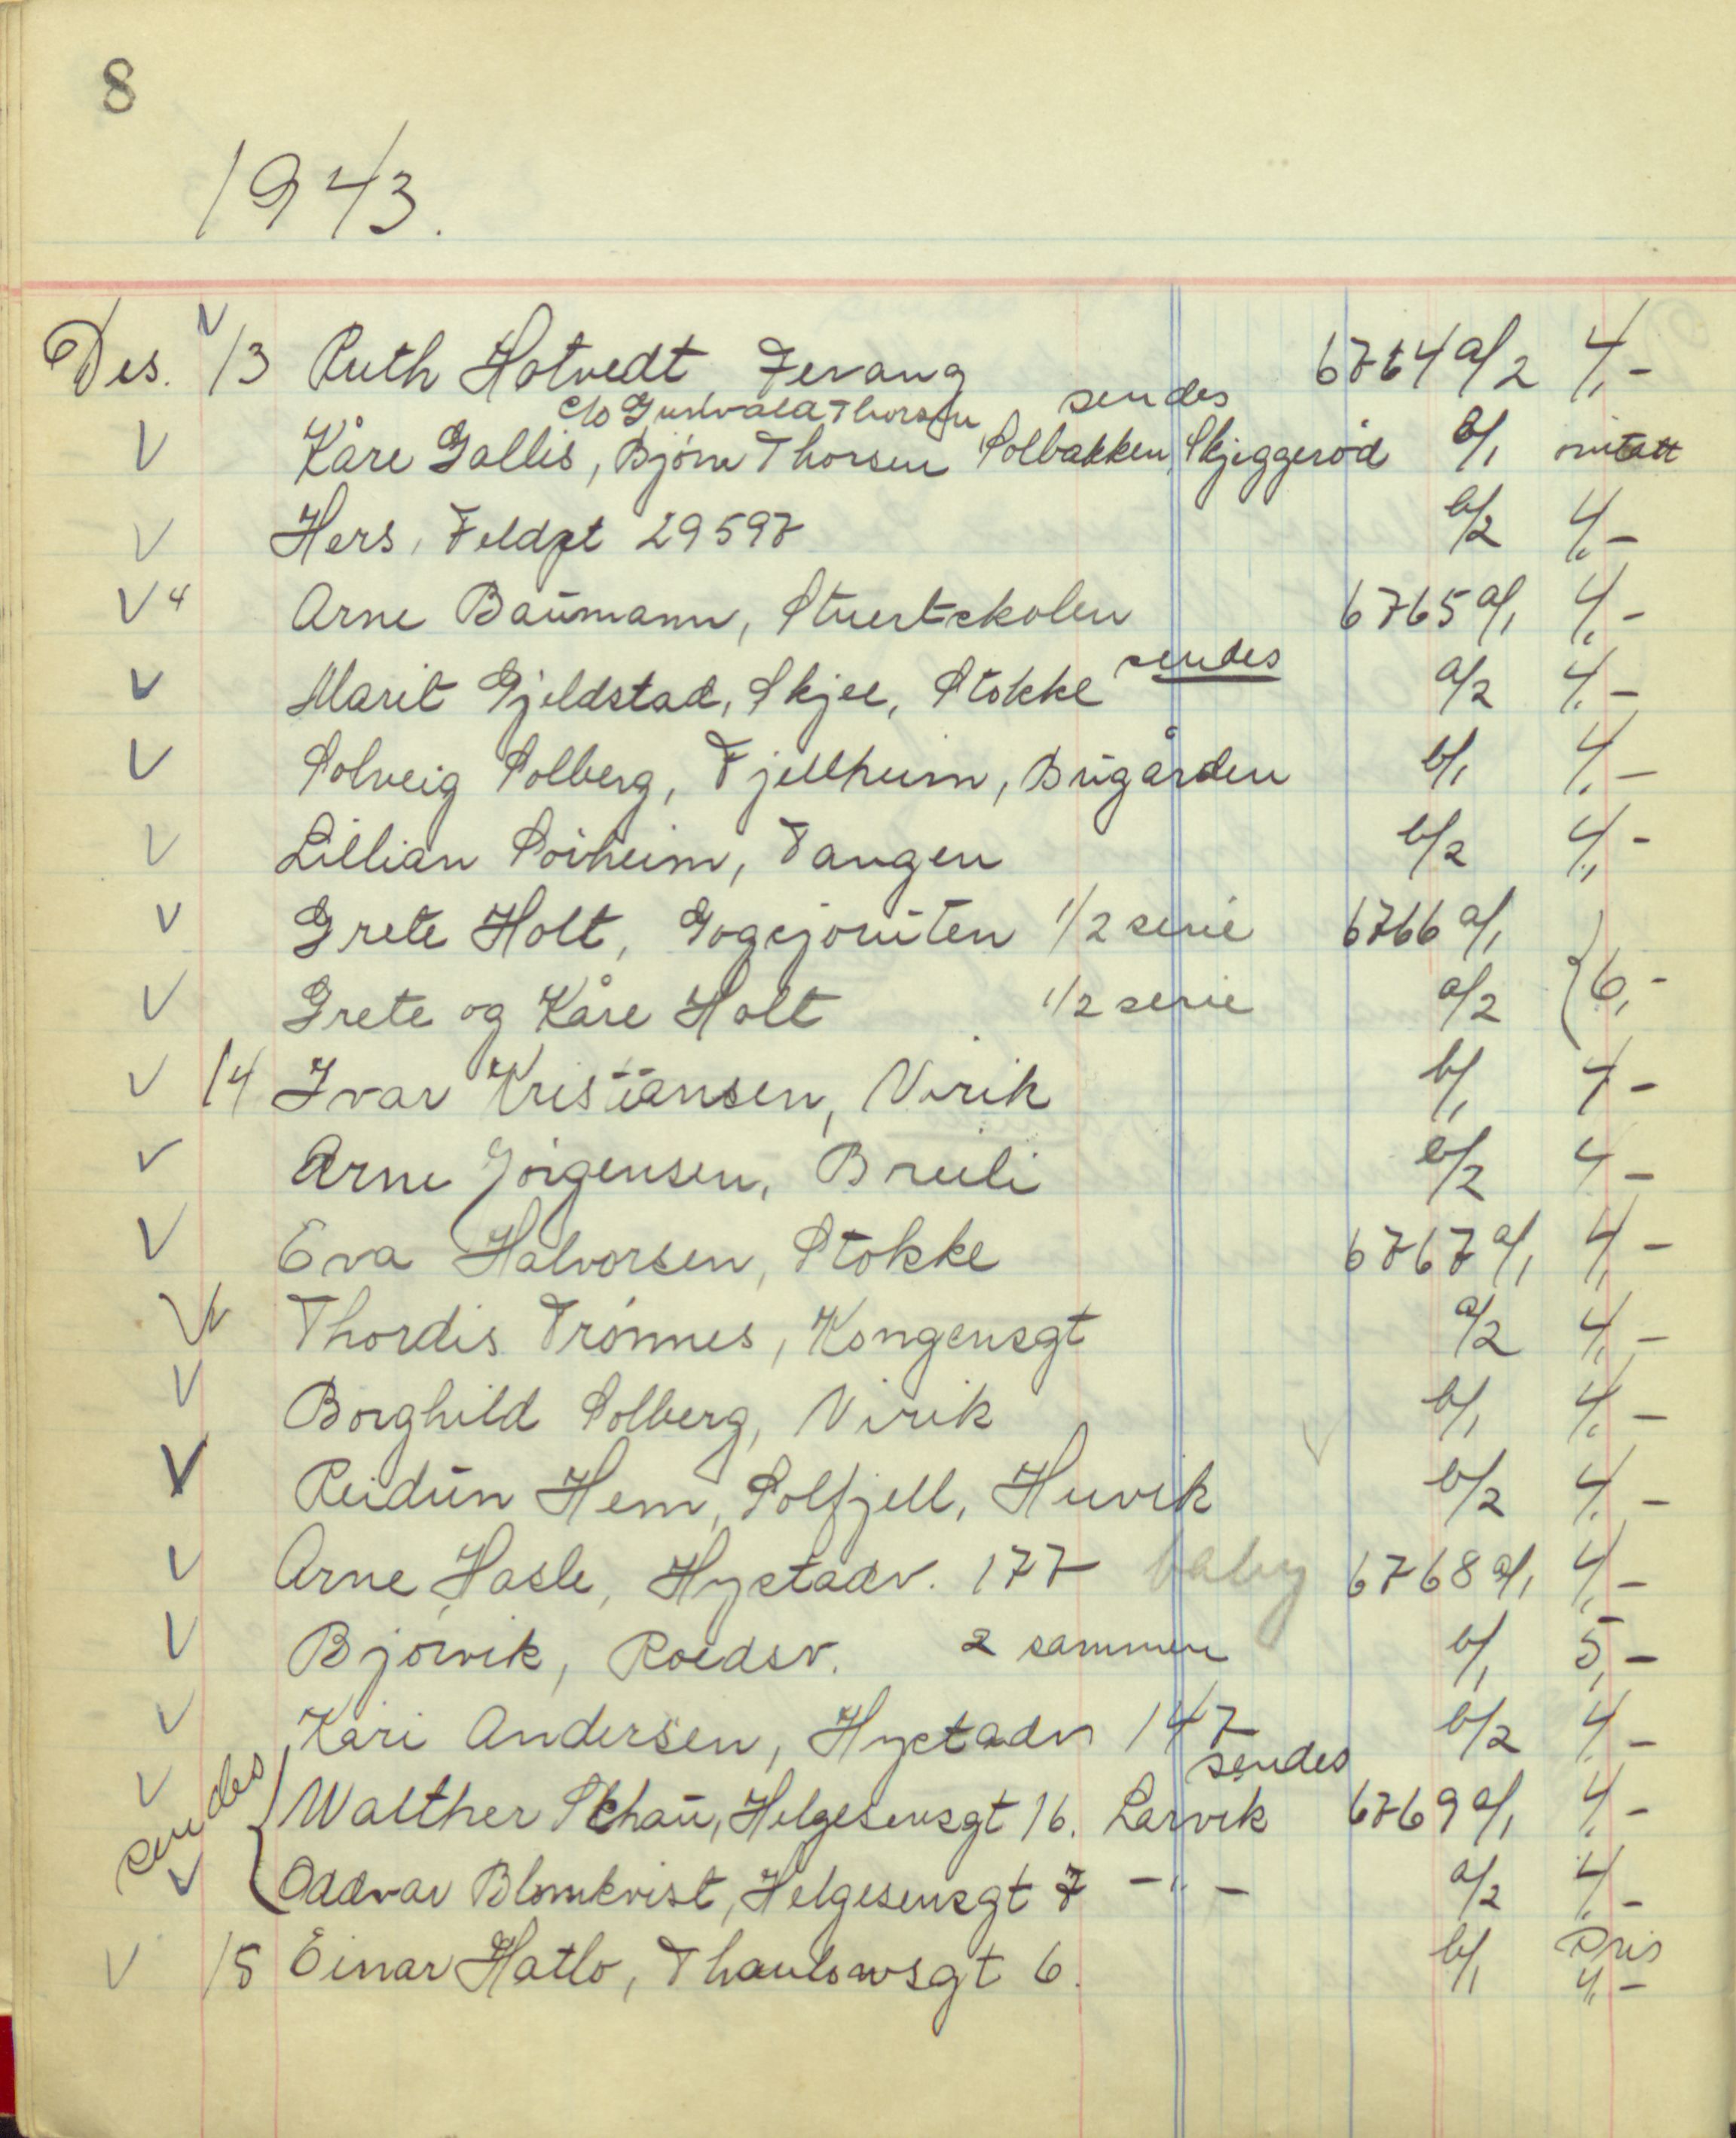 8
1943.
Des. 13 Ruth Hotvedt, Fevang 6764 a/2 4,-
c/o Gunvald Thorsen sendes
Kåre Gallis, Bjørn Thorsen Solbakken, Skjeggerød b/1 omtatt
Hers, Feldpt 29597 b/2 4,-
4 Arne Baumann, Stuertskolen 6765 a/1 4,-
Marit Gjeldstad, Skjee, Stokke sendes a/2 4,-
Solveig Solberg, Fjellheim, Bugården b/1 4,-
Lillian Solheim, Tangen b/2 4,-
Grete Holt, Gogsjøruten 1/2 serie 6766 a/1
Grete og Kåre Holt 1/2 serie a/2 6,-
14 Ivar Kristiansen, Virik b/1 4-
Arne Jörgensen, Breili b/2 4-
Eva Halvorsen, Stokke 6767 a/1 4,-
Thordis Trönnes, Kongensgt a/2 4,-
Borghild Solberg, Virik b/1 4,-
Reidun Hem, Solfjell, Huvik b/2 4,-
Arne Hasle, Hystadv. 177 baby 6768 a/1 4,-
Bjørvik, Roedsv. 2 sammen b/1 5,-
Kari Andersen, Hystadv 147 b/2 4,-
sendes
sendes
Walther Schau, Helgesensgt 16. Larvik 6769 a/1 4,-
Oddvar Blomkvist, Helgesensgt 7 -"- a/2 4,-
15 Einar Hatlo, Thaulowsgt 6. b/1 Pris
4,-